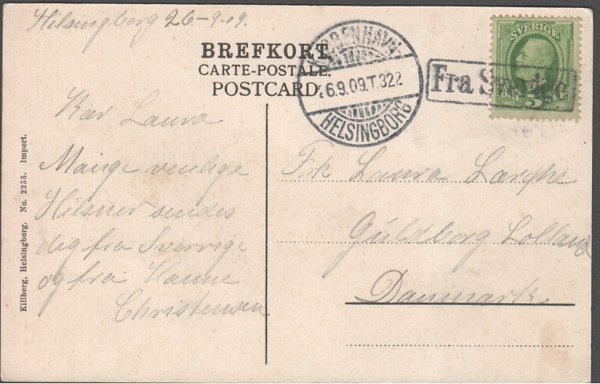 Helsingborg 26-9-09.
BREFKORT
CARTE-POSTALE
POSTCARD.
KJØBENHAVN
26.9.09.T.322
HELSINGBORG
SVERIGE
5
Fra Sverige
Kær Laura
Mange venlige
Hilsner sendes
dig fra Sverrige
og fra Hanne
Christensen
Frk Laura
Guldborg Lolland
Danmark
Killberg, Helsingborg. No. 2255. Import.